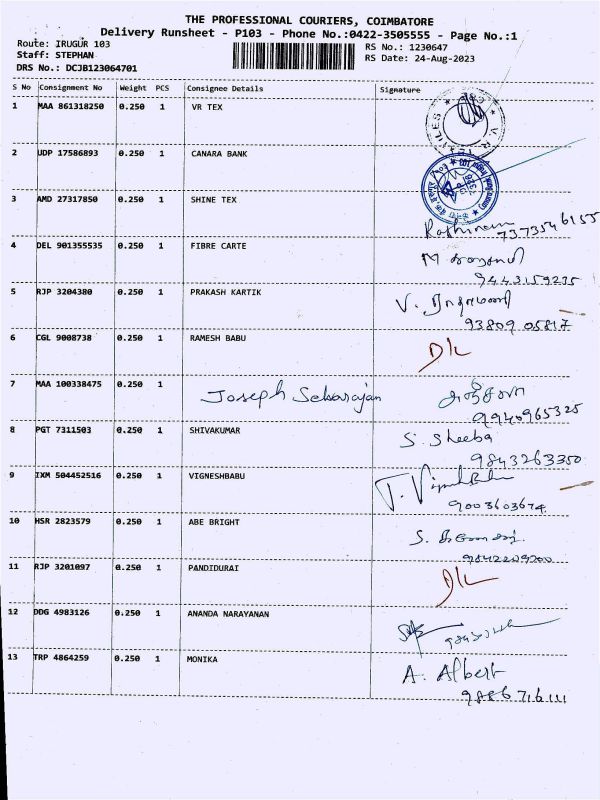 THE PROFESSIONAL COURIERS, COIMBATORE
Delivery Runsheet - P103 - Phone No.:0422-3505555 - Page No.:1
Route: IRUGUR 103
RS No.: 1230647
Staff: STEPHAN
RS Date: 24-Aug-2023
DRS No.: DCJB123064701
S No Consignment No Weight PCS Consignee Details Signature
1 MAA 861318250 0.250 1 VR TEX
2 UDP 17586893 0.250 1 CANARA BANK
3 AMD 27317850 0.250 1 SHINE TEX
7373546155
4 DEL 901355535 0.250 1 FIBRE CARTE
9443159235
5 RJP 3204380 0.250 1 PRAKASH KARTIK
93809 05817
6 CGL 9008738 0.250 1 RAMESH BABU
D/L
7 MAA 100338475 0.250 1 Joseph Sebarajan
9940965325
8 PGT 7311503 0.250 1 SHIVAKUMAR S. Sheeba
9843263350
9 IXM 504452516 0.250 1 VIGNESHBABU
9003603674
10 HSR 2823579 0.250 1 ABE BRIGHT
9842209200
11 RJP 3201097 0.250 1 PANDIDURAI D/L
12 DDG 4983126 0.250 1 ANANDA NARAYANAN
13 TRP 4864259 0.250 1 MONIKA A. Albert
9886716111